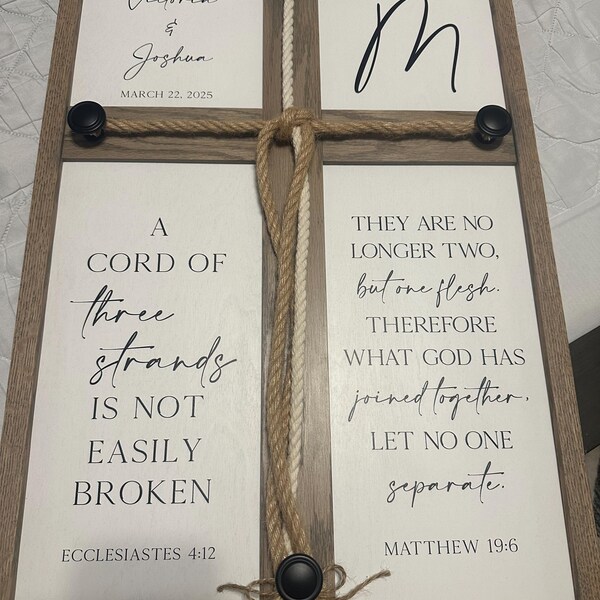 Victoria
&
Joshua
MARCH 22, 2025
M
A
CORD OF
three
strands
IS NOT
EASILY
BROKEN
ECCLESIASTES 4:12
THEY ARE NO
LONGER TWO,
but one flesh.
THEREFORE
WHAT GOD HAS
joined together,
LET NO ONE
separate.
MATTHEW 19:6